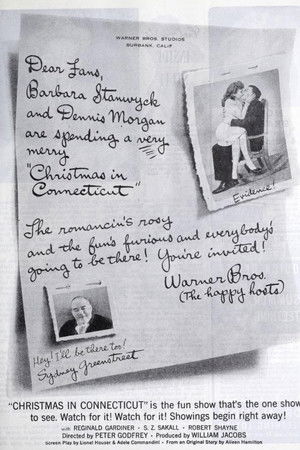 WARNER BROS. STUDIOS
BURBANK, CALIF
Dear Fans,
Barbara Stanwyck
and Dennis Morgan
are spending a very
merry
"Christmas in
Connecticut"
Evidence!
The romancin's rosy
and the fun's furious and everybody's
going to be there! You're invited!
Warner Bros.
(The happy hosts)
Hey! I'll be there too!
Sydney Greenstreet
"CHRISTMAS IN CONNECTICUT" is the fun show that's the one show
to see. Watch for it! Watch for it! Showings begin right away!
with REGINALD GARDINER · S. Z. SAKALL · ROBERT SHAYNE
Directed by PETER GODFREY · Produced by WILLIAM JACOBS
Screen Play by Lionel Houser & Adele Commandini · From an Original Story by Aileen Hamilton